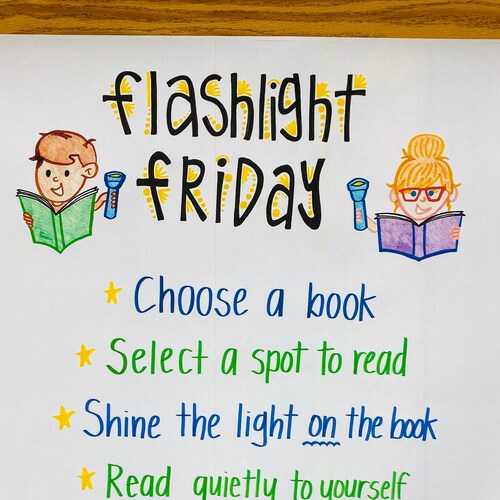 flashlight
FRiDAY
Choose a book
Select a spot to read
Shine the light on the book
Read quietly to yourself